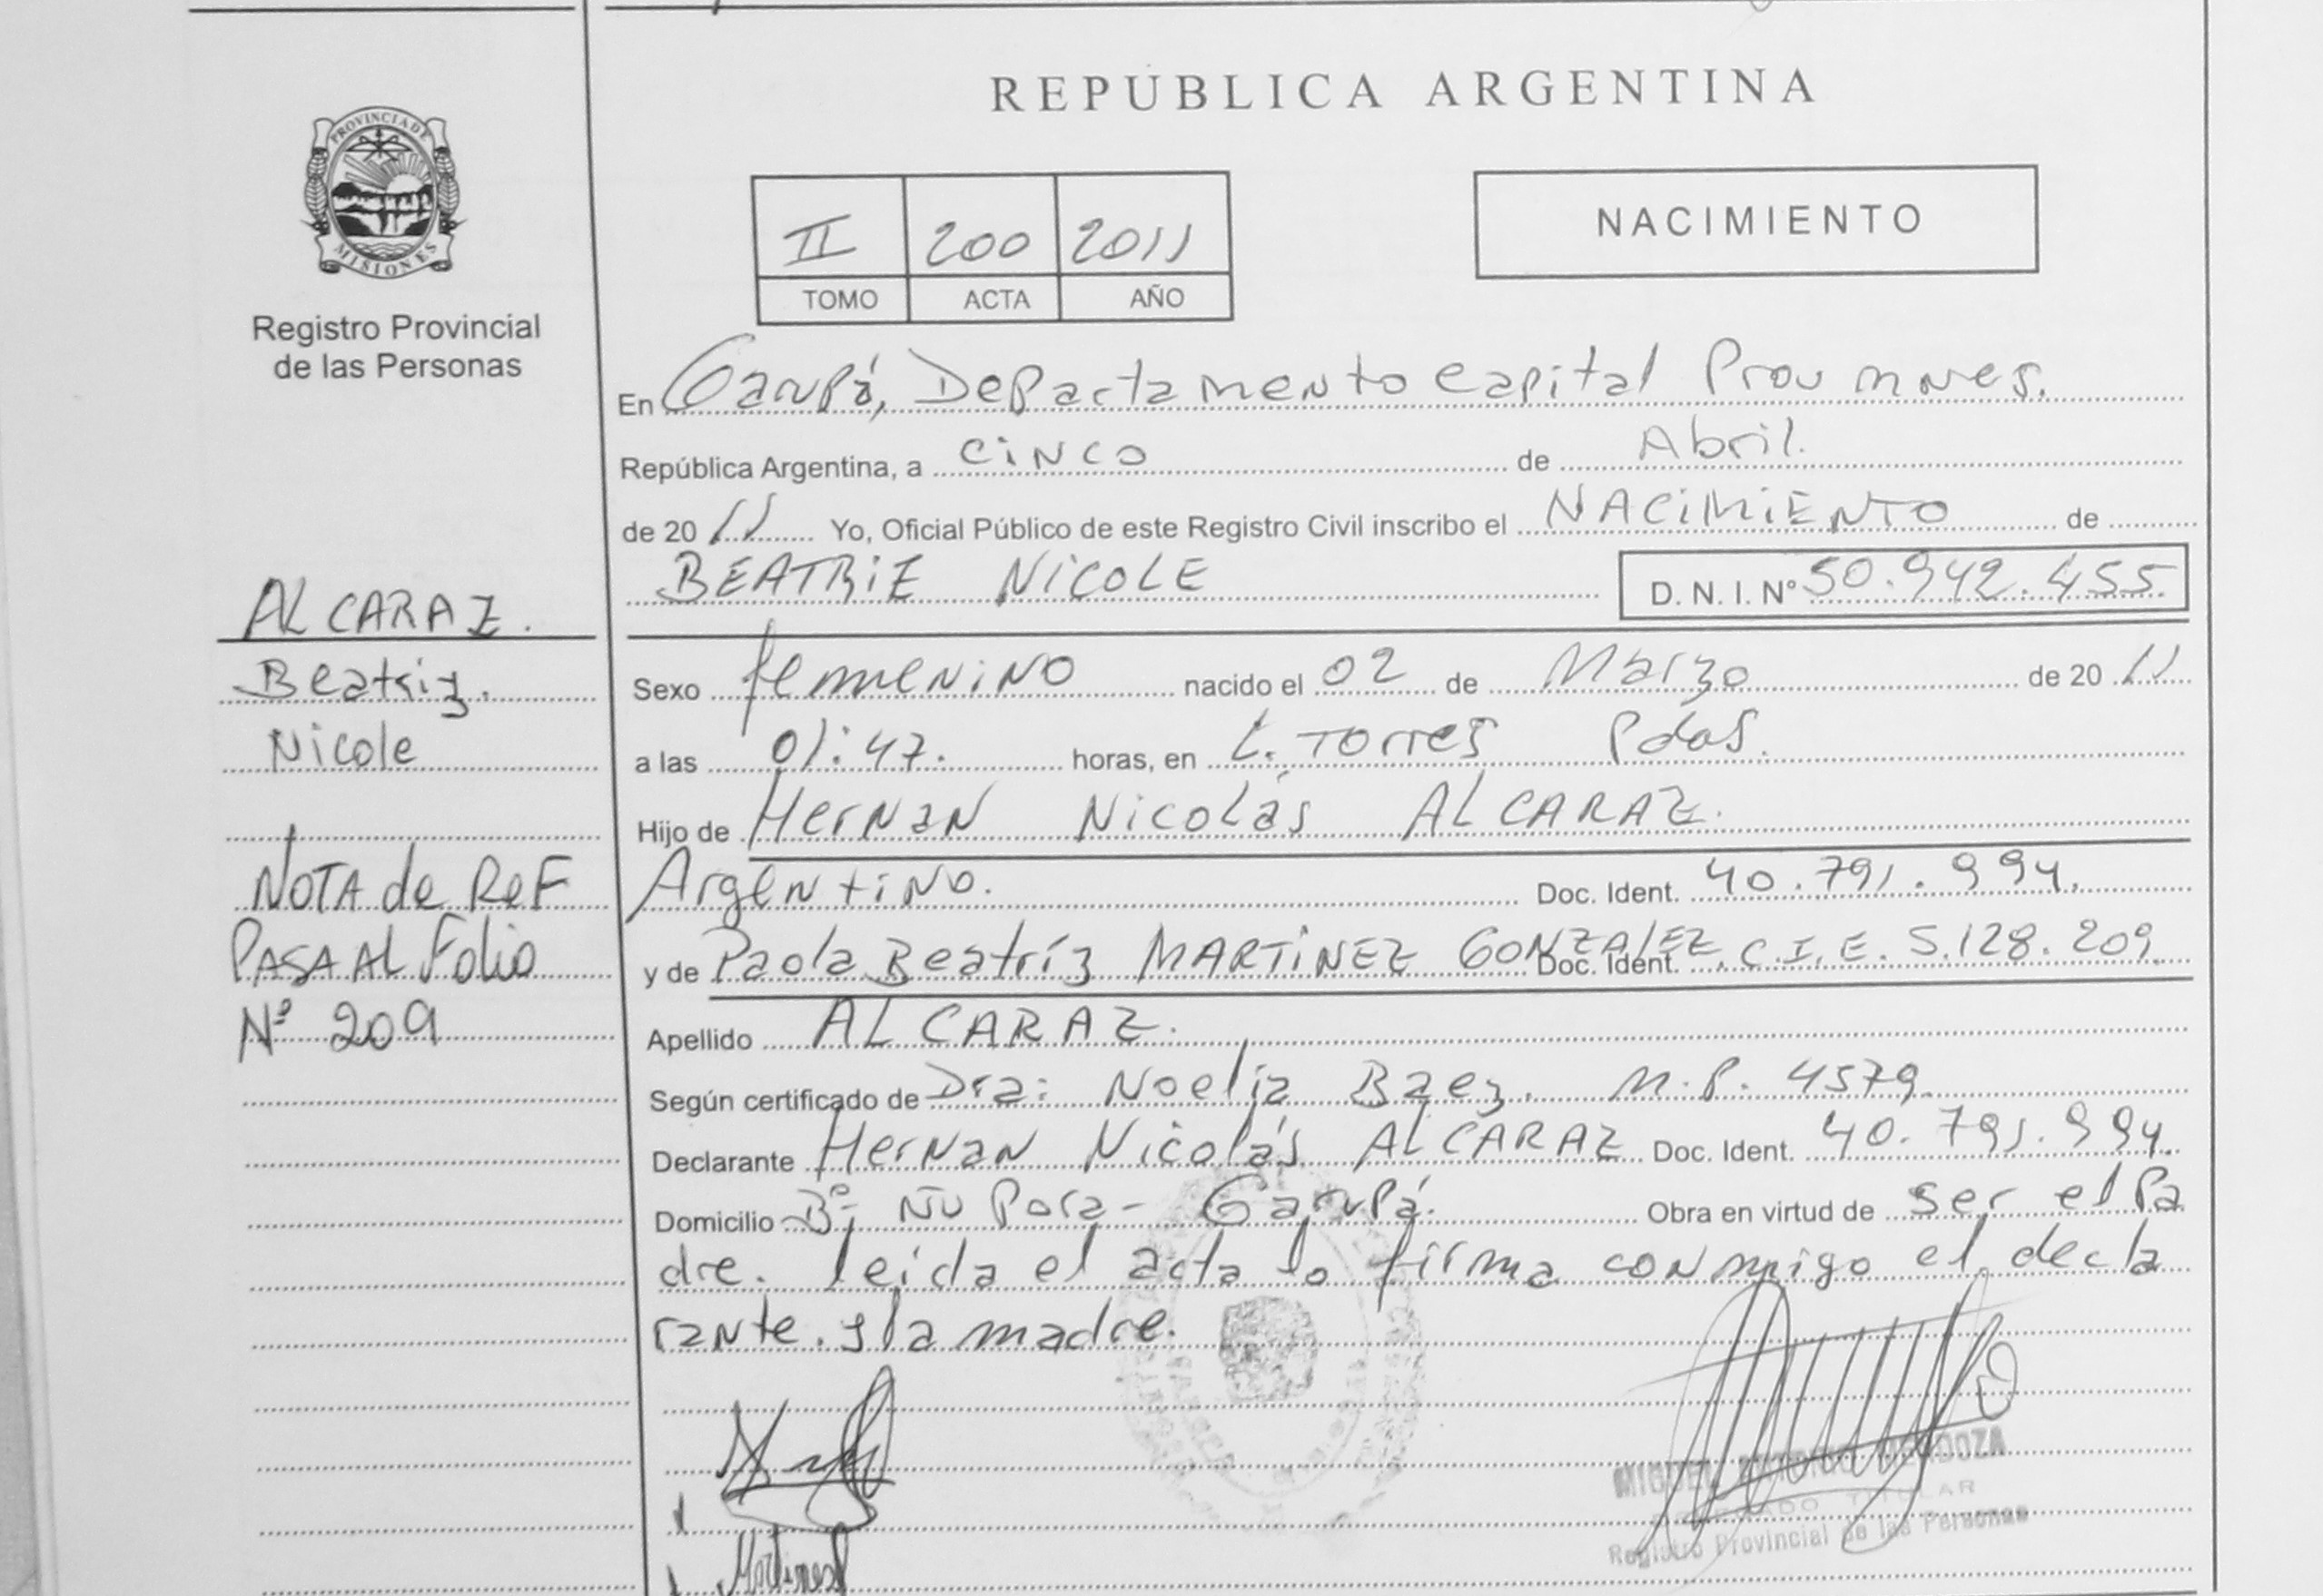 REPUBLICA ARGENTINA
PROVINCIA DE
MISIONES
Registro Provincial
de las Personas
II 200 2011
TOMO ACTA AÑO
NACIMIENTO
En Garupá, Departamento Capital Prov mnes.
República Argentina, a cinco de Abril.
de 20 11 Yo, Oficial Público de este Registro Civil inscribo el NACIMIENTO de
BEATRIZ NICOLE D. N. I. Nº 50.942.455.
ALCARAZ.
Beatriz.
Nicole
Sexo femenino nacido el 02 de Marzo de 20 11
a las 01:47. horas, en L. Torres Pdas.
Hijo de Hernan Nicolás ALCARAZ.
Argentino. Doc. Ident. 40.791.994.
y de Paola Beatríz MARTINEZ GONZALEZ Doc. Ident. C.I.E. 5.128.209.
NOTA de ReF
PASA AL Folio
Nº 209
Apellido ALCARAZ.
Según certificado de Dra: Noelia Baez. M.P. 4579.
Declarante Hernan Nicolás ALCARAZ Doc. Ident. 40.791.994.
Domicilio Bº Ñu Pora - Garupá. Obra en virtud de ser el Pa
dre. leída el acta lo firma conmigo el decla
rante. y la madre.
MIGUEL ANTONIO MENDOZA
TITULAR
Registro Provincial de las Personas
Martinez